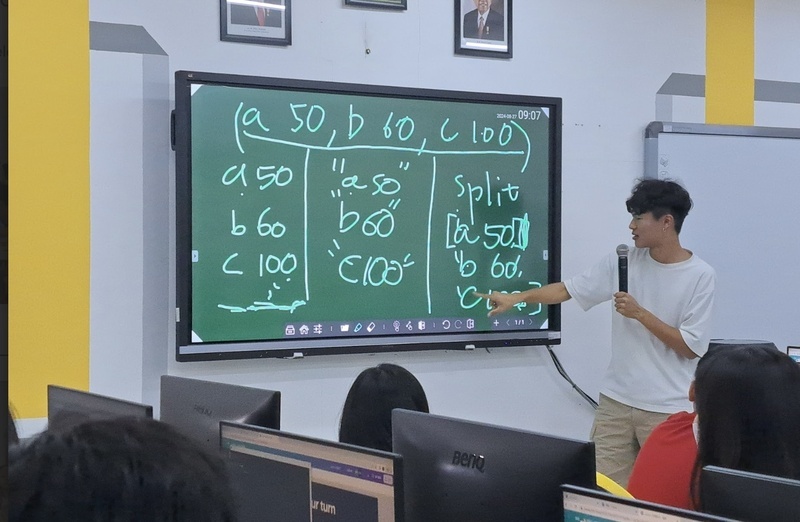 2024-09-27 09:07
(a 50, b 60, c 100)
a 50
b 60
c 100
"a 50"
"b 60"
"c 100"
split
[a 50]
"b 60,
BenQ
ur turn